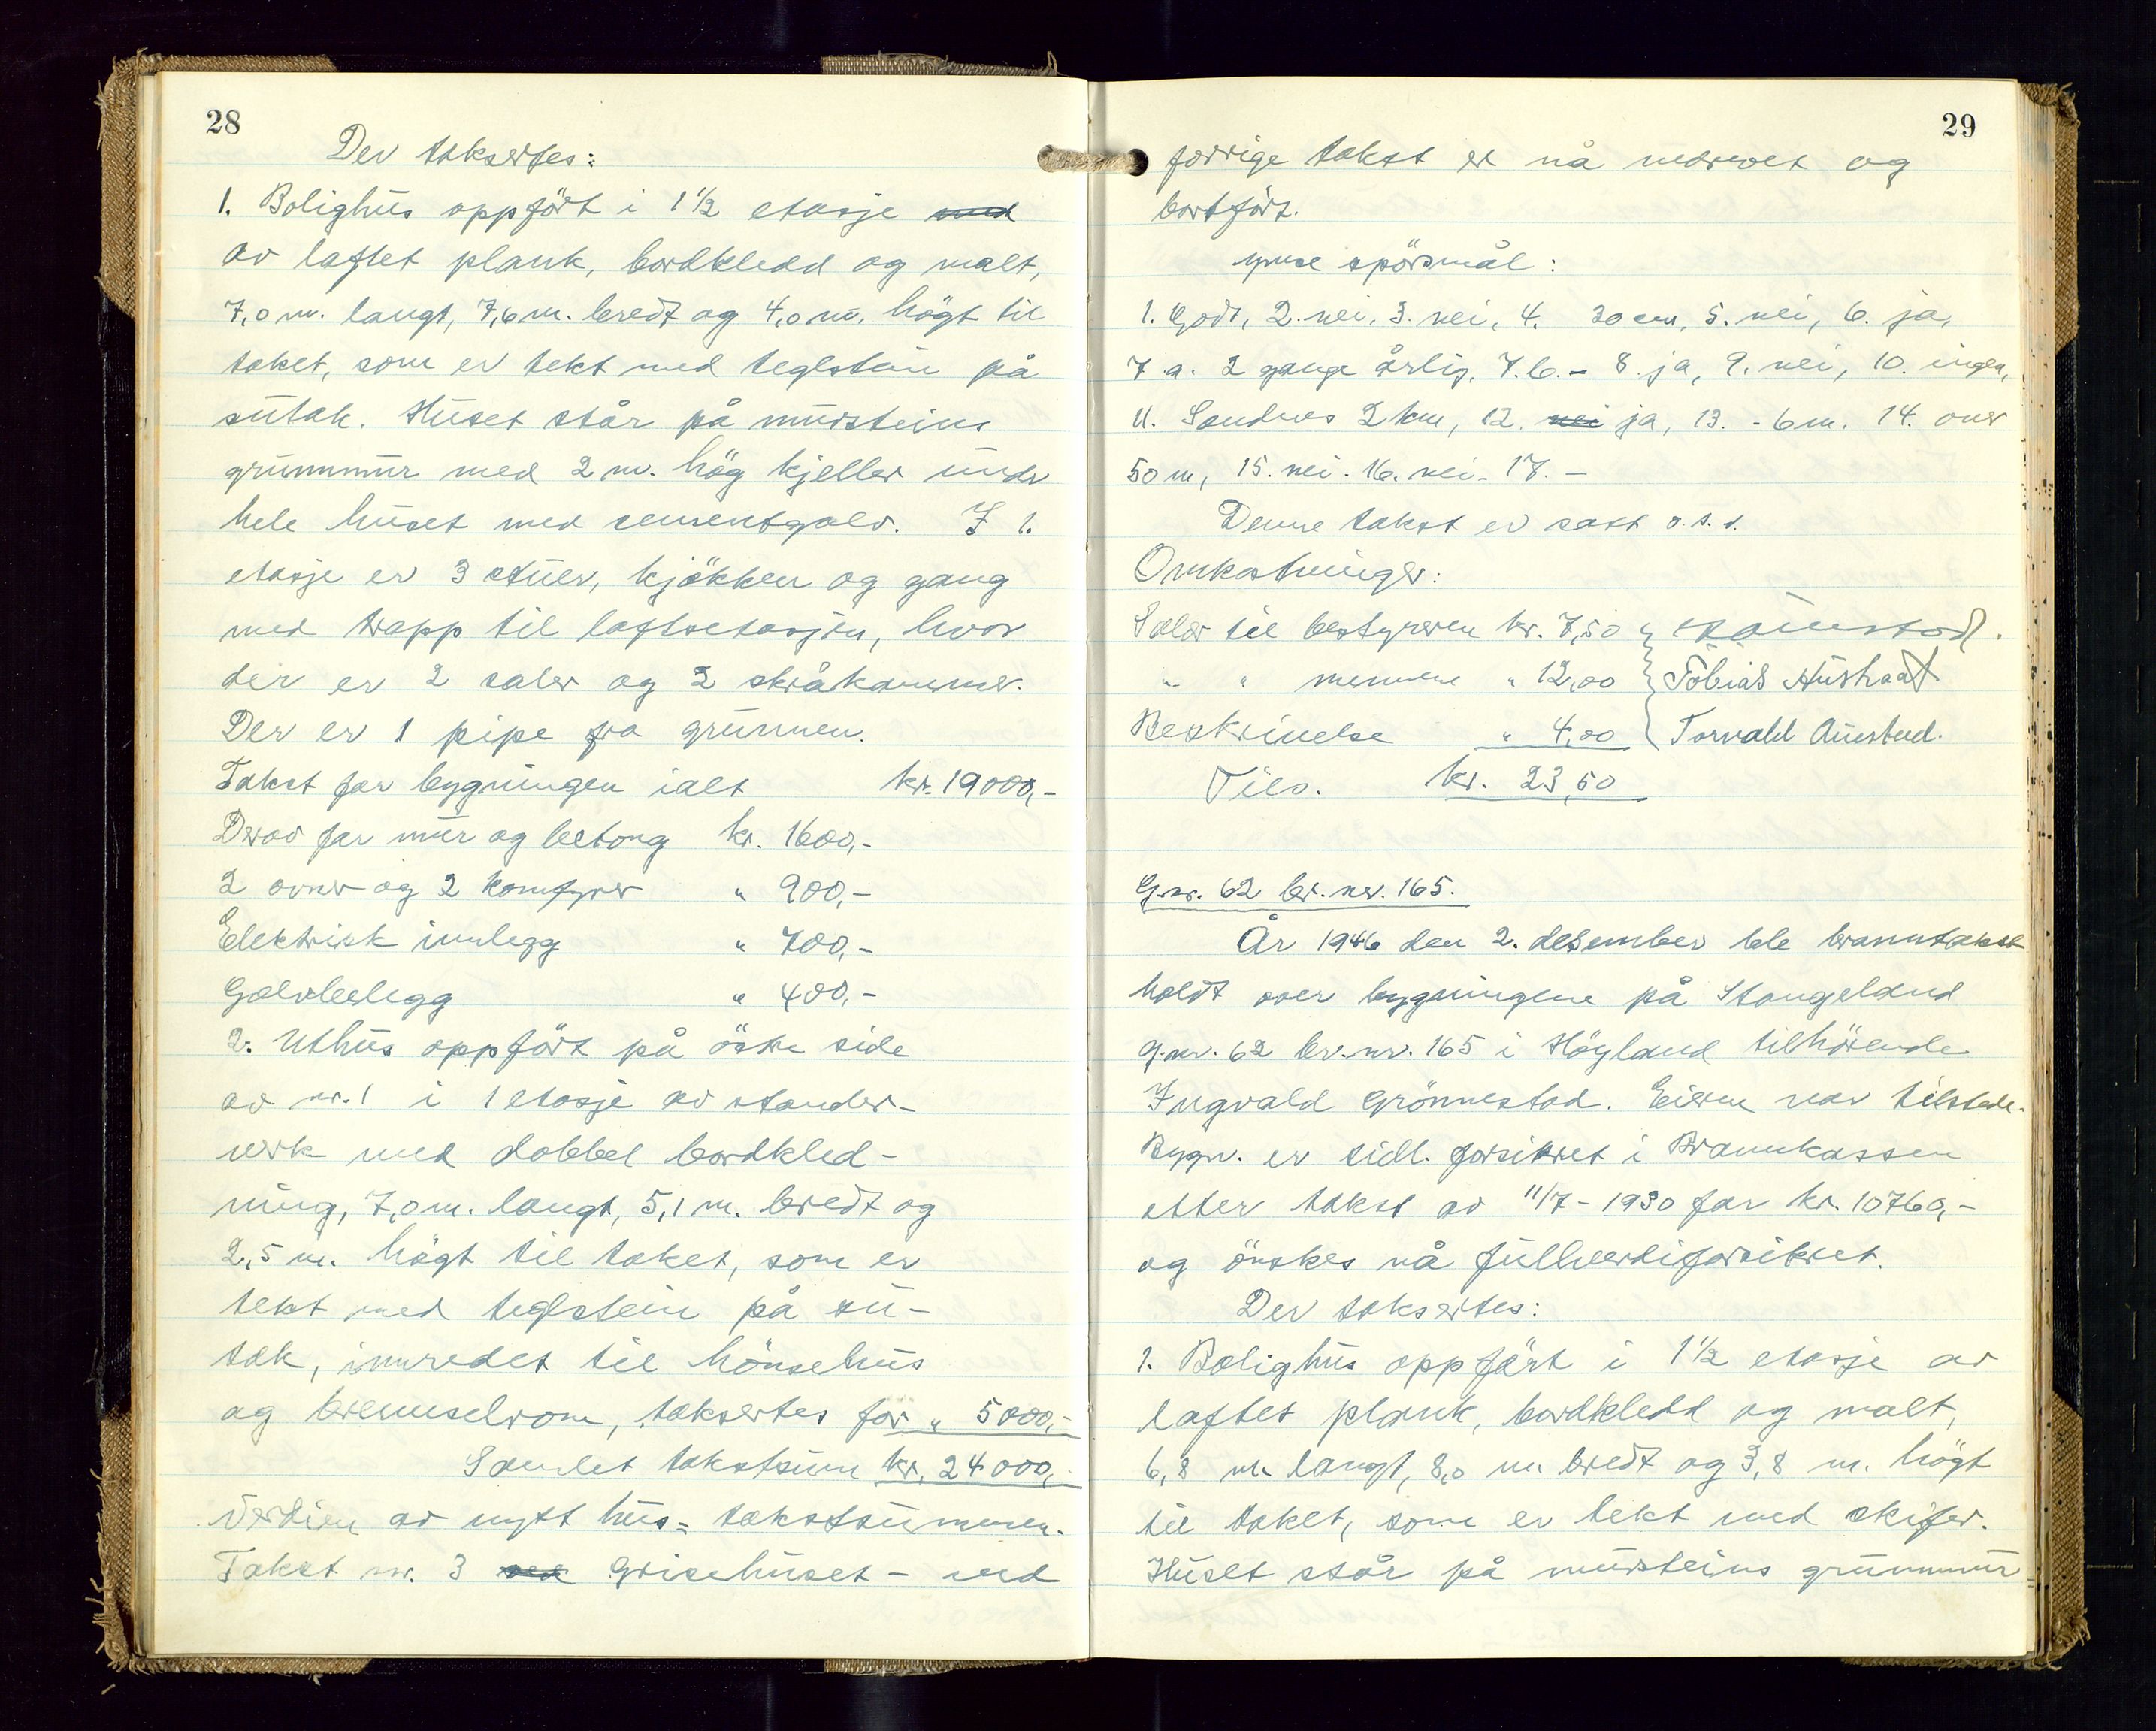 28
Der takseres:
1. Bolighus oppfört i 1 1/2 etasje med
av laftet plank, bordkledd og malt,
7,0 m. langt, 7,6 m. bredt og 4,0 m. högt til
taket, som er tekt med teglstein på
sutak. Huset står på mursteins
grunnmur med 2 m. hög kjeller under
hele huset med sementgolv. I 1.
etasje er 3 stuer, kjökken og gang
med trapp til loftsetasjen, hvor
der er 2 saler og 2 skråkammer.
Der er 1 pipe fra grunnen.
Takst for bygningen ialt kr. 19000,-
Derav for mur og betong kr. 1600,-
2 ovner og 2 komfyrer " 900,-
Elektrisk innlegg " 700,-
Golvbelegg " 400,-
2. Uthus oppfört på östre side
av nr. 1 i 1 etasje av stender-
verk med dobbel bordkled-
ning, 7,0 m. langt, 5,1 m. bredt og
2,5 m. högt til taket, som er
tekt med teglstein på su-
tak, innredet til hönsehus
og brenselrom, takseres for " 5000,-
Samlet takstsum kr. 24000,-
Verdien av nytt hus = takstsummen.
Takst nr. 3 ved Grisehuset - ved
29
forrige takst er nå nedrevet og
bortfört.
ymse spörsmål:
1. Godt, 2. nei, 3. nei, 4. 30 cm, 5. nei, 6. ja,
7 a. 2 gange årlig, 7.b. - 8. ja, 9. nei, 10. ingen,
11. Sandnes 2 km, 12. nei ja, 13. - 6 m. 14. over
50 m, 15. nei. 16. nei. 17. -
Denne takst er satt o.s.v.
Omkostninger:
Salær til bestyreren kr. 7,50
" " mennene " 12,00 Tobias Austraat
Beskrivelse " 4,00 Torvald Austad.
Tils. kr. 23,50
G.nr. 62 br. nr. 165.
År 1946 den 2. desember ble branntakst
holdt over bygningene på Stangeland
g.nr. 62 br.nr. 165 i Höyland tilhörende
Ingvald Grönnestad. Eieren var tilstede.
Bygn. er tidl. forsikret i Brannkassen
etter takst av 11/7 - 1930 for kr. 10760,-
og önskes nå fullverdiforsikret.
Der takseres:
1. Bolighus oppfört i 1 1/2 etasje av
laftet plank, bordkledd og malt,
6,8 m. langt, 8,0 m. bredt og 3,8 m. högt
til taket, som er tekt med skifer.
Huset står på mursteins grunnmur